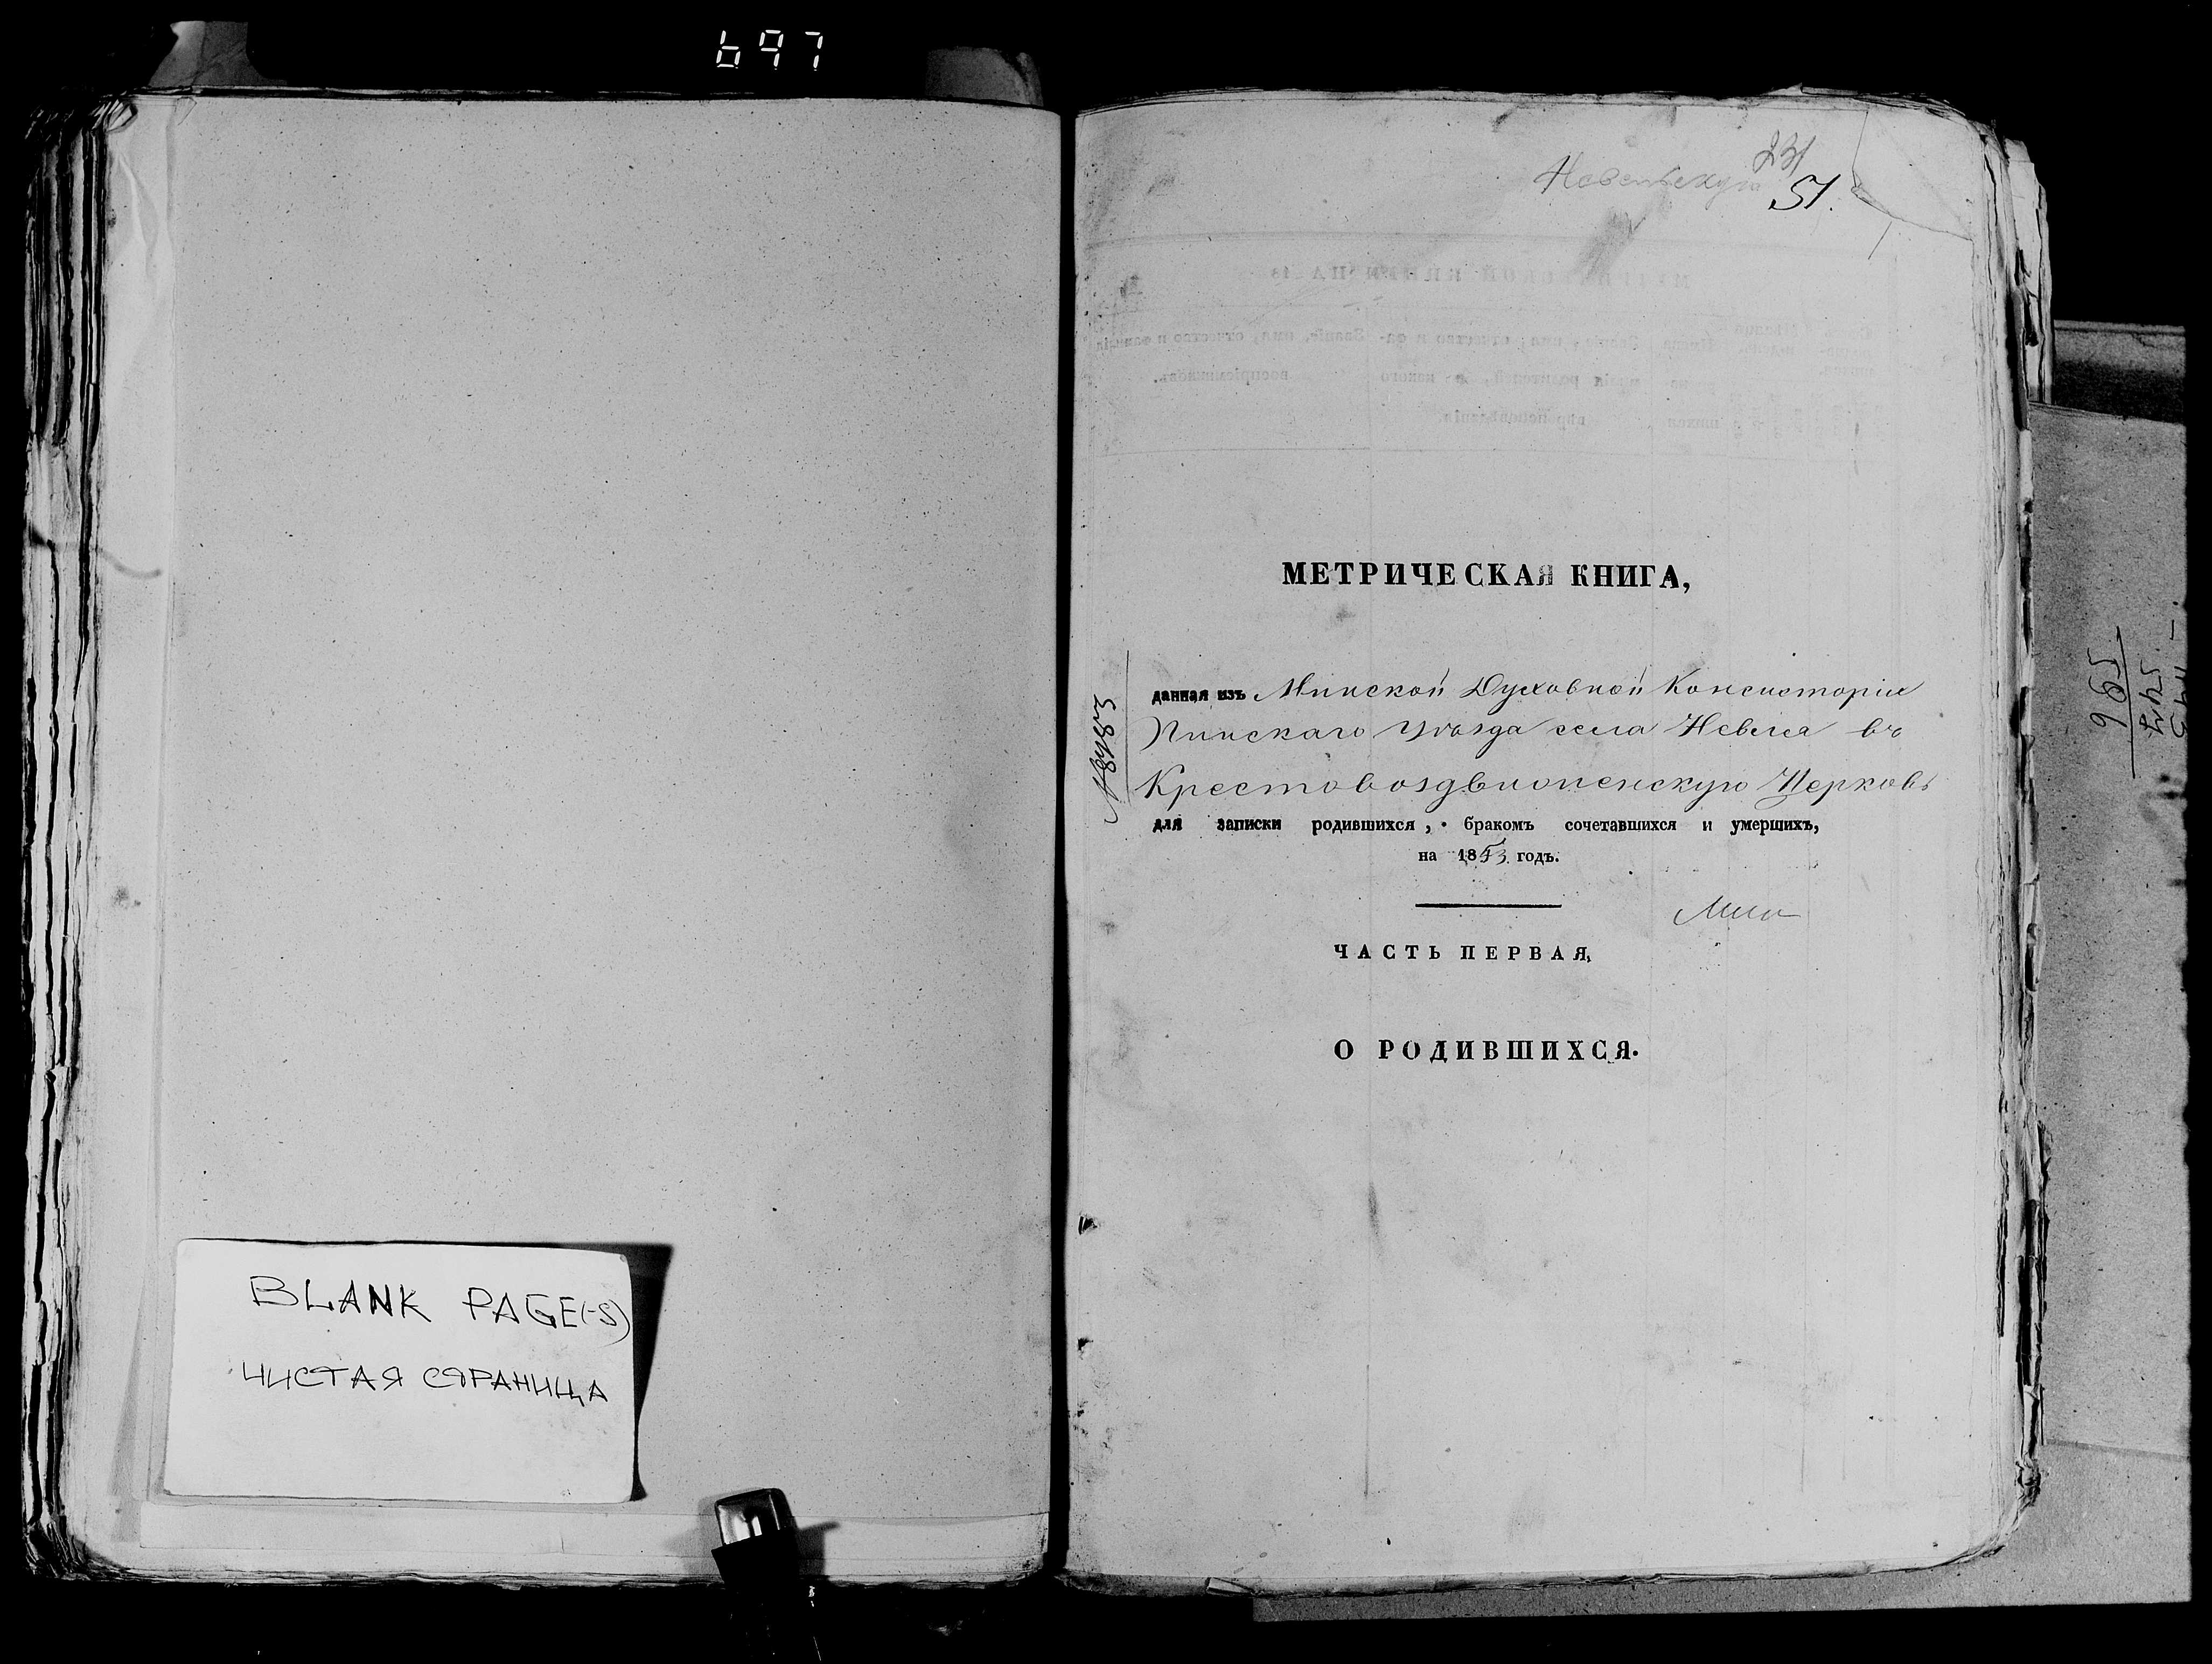 697
BLANK PAGE(-S)
ЧИСТАЯ СТРАНИЦА
51.
МЕТРИЧЕСКАЯ КНИГА,
данная изъ Минской Духовной Консисторіи
Пинскаго Уѣзда села Невеля въ
Крестовоздвиженскую Церковь
для записки родившихся, бракомъ сочетавшихся и умершихъ,
на 1853 годъ.
ЧАСТЬ ПЕРВАЯ,
О РОДИВШИХСЯ.
965